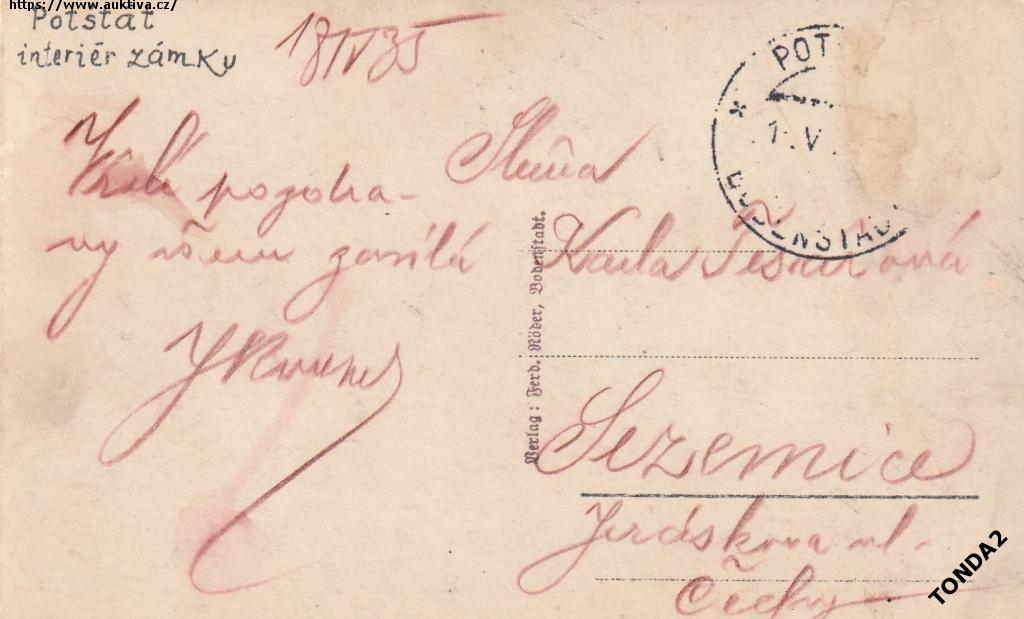 https://www.auktiva.cz/
Potštát
interiér zámku
18/IV 35
pozdra-
vy všem zasílá
Slečna
Karla
Sezemice
Jiráskova ul.
Čechy
POT
1. V
BODENSTADT
Verlag: Ferd. Röder, Bodenstadt.
TONDA2